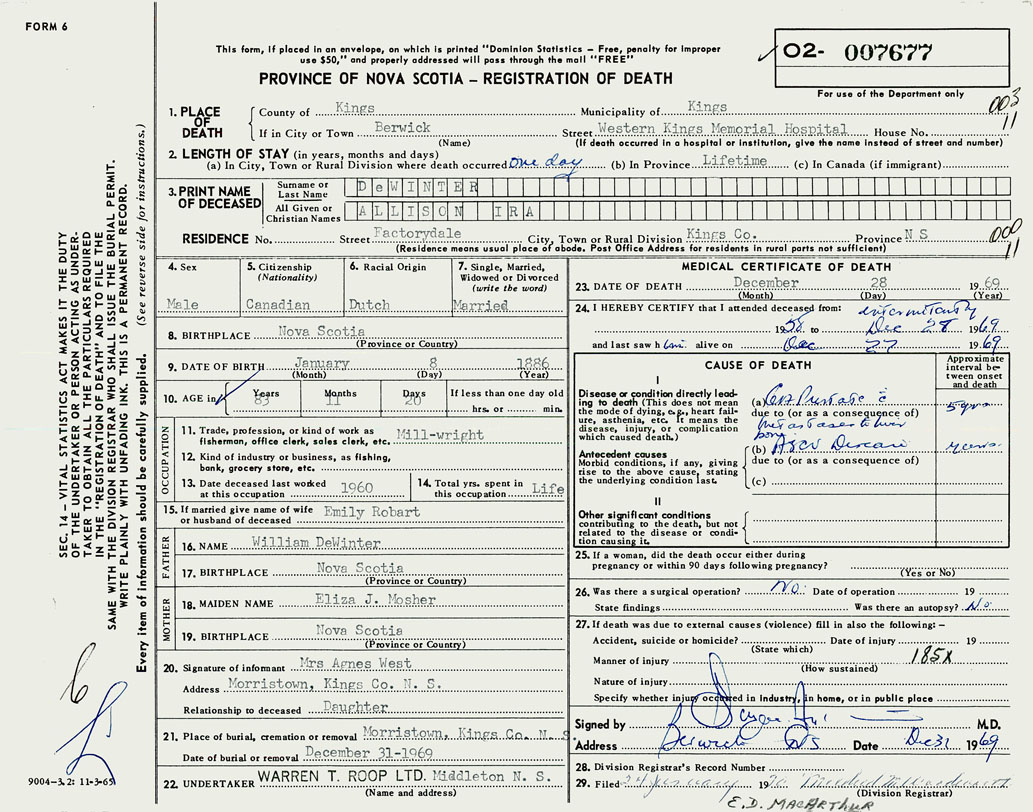 FORM 6
This form, if placed in an envelope, on which is printed "Dominion Statistics – Free, penalty for improper
use $50," and properly addressed will pass through the mail "FREE"
PROVINCE OF NOVA SCOTIA – REGISTRATION OF DEATH
02- 007677
For use of the Department only
003
11
1. PLACE OF DEATH
County of Kings Municipality of Kings
If in City or Town Berwick Street Western Kings Memorial Hospital House No.
(Name) (If death occurred in a hospital or institution, give the name instead of street and number)
2. LENGTH OF STAY (in years, months and days)
(a) In City, Town or Rural Division where death occurred one day (b) In Province Lifetime (c) In Canada (if immigrant)
3. PRINT NAME OF DECEASED
Surname or Last Name DeWINTER
All Given or Christian Names ALLISON IRA
RESIDENCE No. Street Factorydale City, Town or Rural Division Kings Co. Province N S
(Residence means usual place of abode. Post Office Address for residents in rural parts not sufficient)
000
11
4. Sex Male
5. Citizenship (Nationality) Canadian
6. Racial Origin Dutch
7. Single, Married, Widowed or Divorced (write the word) Married
8. BIRTHPLACE Nova Scotia
(Province or Country)
9. DATE OF BIRTH January 8 1886
(Month) (Day) (Year)
10. AGE in Years 83 Months 11 Days 20 If less than one day old
hrs. or min.
OCCUPATION
11. Trade, profession, or kind of work as
fisherman, office clerk, sales clerk, etc. Mill-wright
12. Kind of industry or business, as fishing,
bank, grocery store, etc.
13. Date deceased last worked
at this occupation 1960
14. Total yrs. spent in
this occupation Life
15. If married give name of wife
or husband of deceased Emily Robart
FATHER
16. NAME William DeWinter
17. BIRTHPLACE Nova Scotia
(Province or Country)
MOTHER
18. MAIDEN NAME Eliza J. Mosher
19. BIRTHPLACE Nova Scotia
(Province or Country)
20. Signature of informant Mrs Agnes West
Address Morristown, Kings Co. N. S.
Relationship to deceased Daughter
21. Place of burial, cremation or removal Morristown, Kings Co. N. S
Date of burial or removal December 31-1969
22. UNDERTAKER WARREN T. ROOP LTD. Middleton N. S.
(Name and address)
MEDICAL CERTIFICATE OF DEATH
23. DATE OF DEATH December 28 1969
(Month) (Day) (Year)
24. I HEREBY CERTIFY that I attended deceased from: intermittently
1958 to Dec 28 1969
and last saw him alive on Dec 27 1969
CAUSE OF DEATH
Approximate
interval between onset
and death
I
Disease or condition directly leading to death (This does not mean
the mode of dying, e.g., heart failure, asthenia, etc. It means the
disease, injury, or complication
which caused death.)
(a) Ca Prostate c̄
due to (or as a consequence of)
metastases to liver
bone
5 yrs
Antecedent causes
Morbid conditions, if any, giving
rise to the above cause, stating
the underlying condition last.
(b) Disease
due to (or as a consequence of)
(c)
II
Other significant conditions
contributing to the death, but not
related to the disease or condition causing it.
25. If a woman, did the death occur either during
pregnancy or within 90 days following pregnancy?
(Yes or No)
26. Was there a surgical operation? No. Date of operation 19
State findings Was there an autopsy? No
27. If death was due to external causes (violence) fill in also the following: –
Accident, suicide or homicide? Date of injury 19
(State which)
Manner of injury 185X
(How sustained)
Nature of injury
Specify whether injury occurred in Industry, in home, or in public place
Signed by M.D.
Address Berwick NS Date Dec 31 1969
28. Division Registrar's Record Number
29. Filed January 1970
(Division Registrar)
E.D. MACARTHUR
SEC. 14 – VITAL STATISTICS ACT MAKES IT THE DUTY
OF THE UNDERTAKER OR PERSON ACTING AS UNDERTAKER TO OBTAIN ALL THE PARTICULARS REQUIRED
IN THE "REGISTRATION OF DEATH" AND TO FILE THE
SAME WITH THE DIVISION REGISTRAR WHO SHALL ISSUE THE BURIAL PERMIT.
WRITE PLAINLY WITH UNFADING INK. THIS IS A PERMANENT RECORD.
Every item of information should be carefully supplied. (See reverse side for instructions.)
9004-3.2: 11-3-65